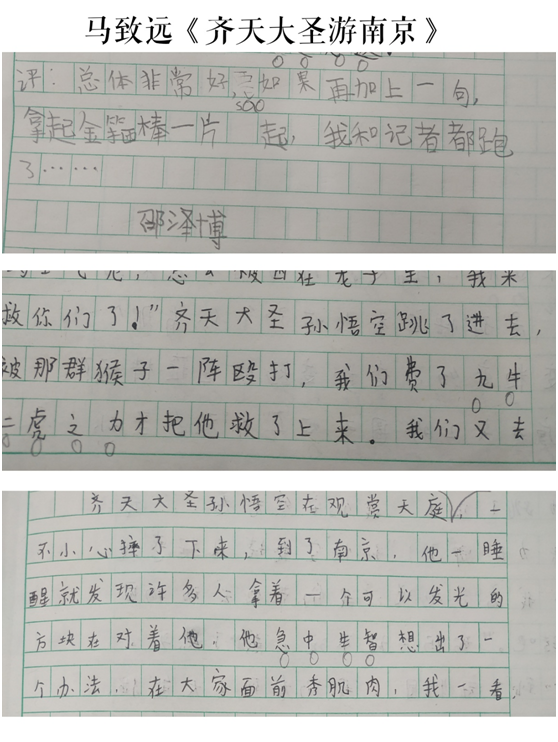 马致远《齐天大圣游南京》
评：总体非常好，如果再加上一句，
拿起金箍棒一片 起，我和记者都跑
了……
邵泽博
救你们了！”齐天大圣孙悟空跳了进去，
被那群猴子一阵殴打，我们费了九牛
二虎之力才把他救了上来。我们又去
齐天大圣孙悟空在观赏天庭，一
不小心摔了下来，到了南京，他一睡
醒就发现许多人拿着一个可以发光的
方块在对着他，他急中生智想出了一
个办法，在大家面前秀肌肉，我一看，